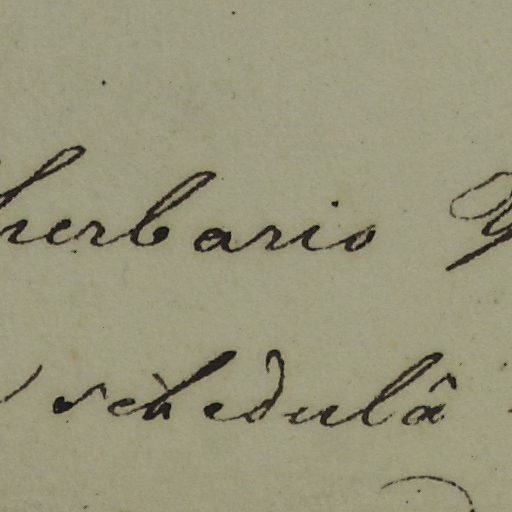 herbario
schedulâ